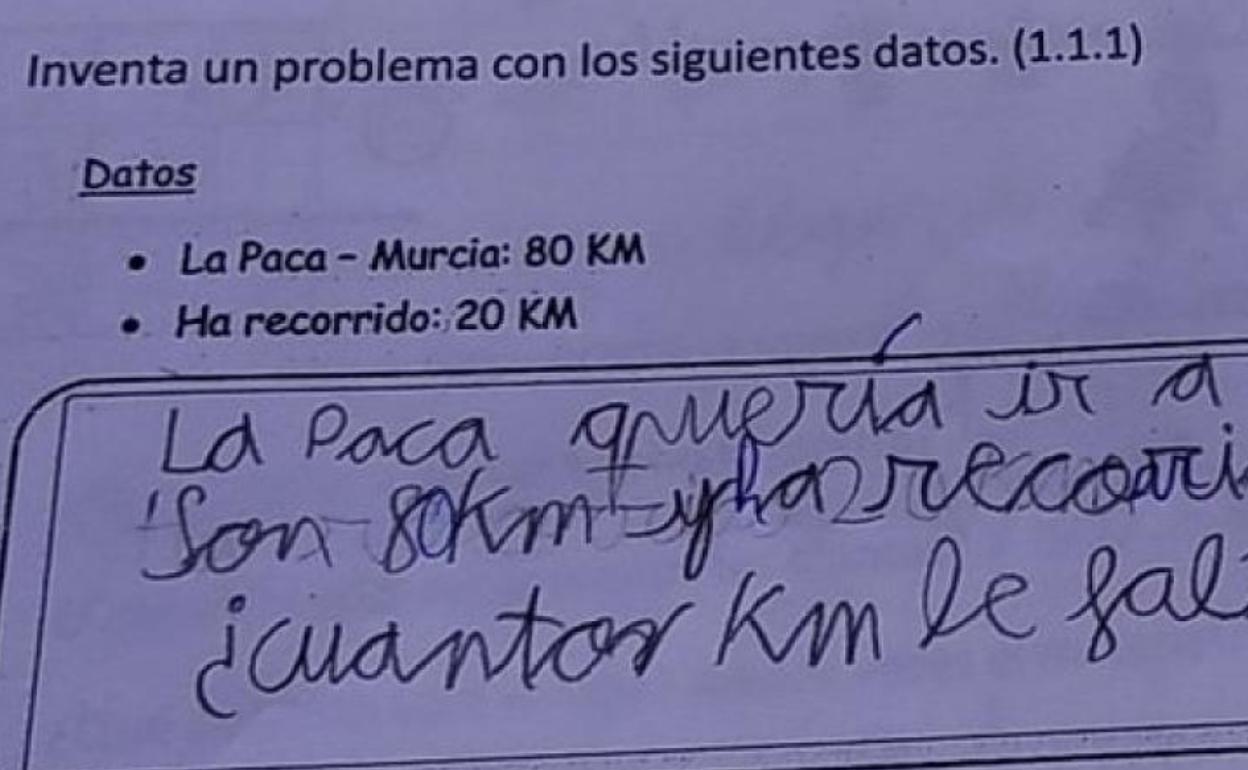 Inventa un problema con los siguientes datos. (1.1.1)
Datos
• La Paca - Murcia: 80 KM
• Ha recorrido: 20 KM
La Paca quería ir a
Son 80km y ha recorri
¿cuantos Km le fal